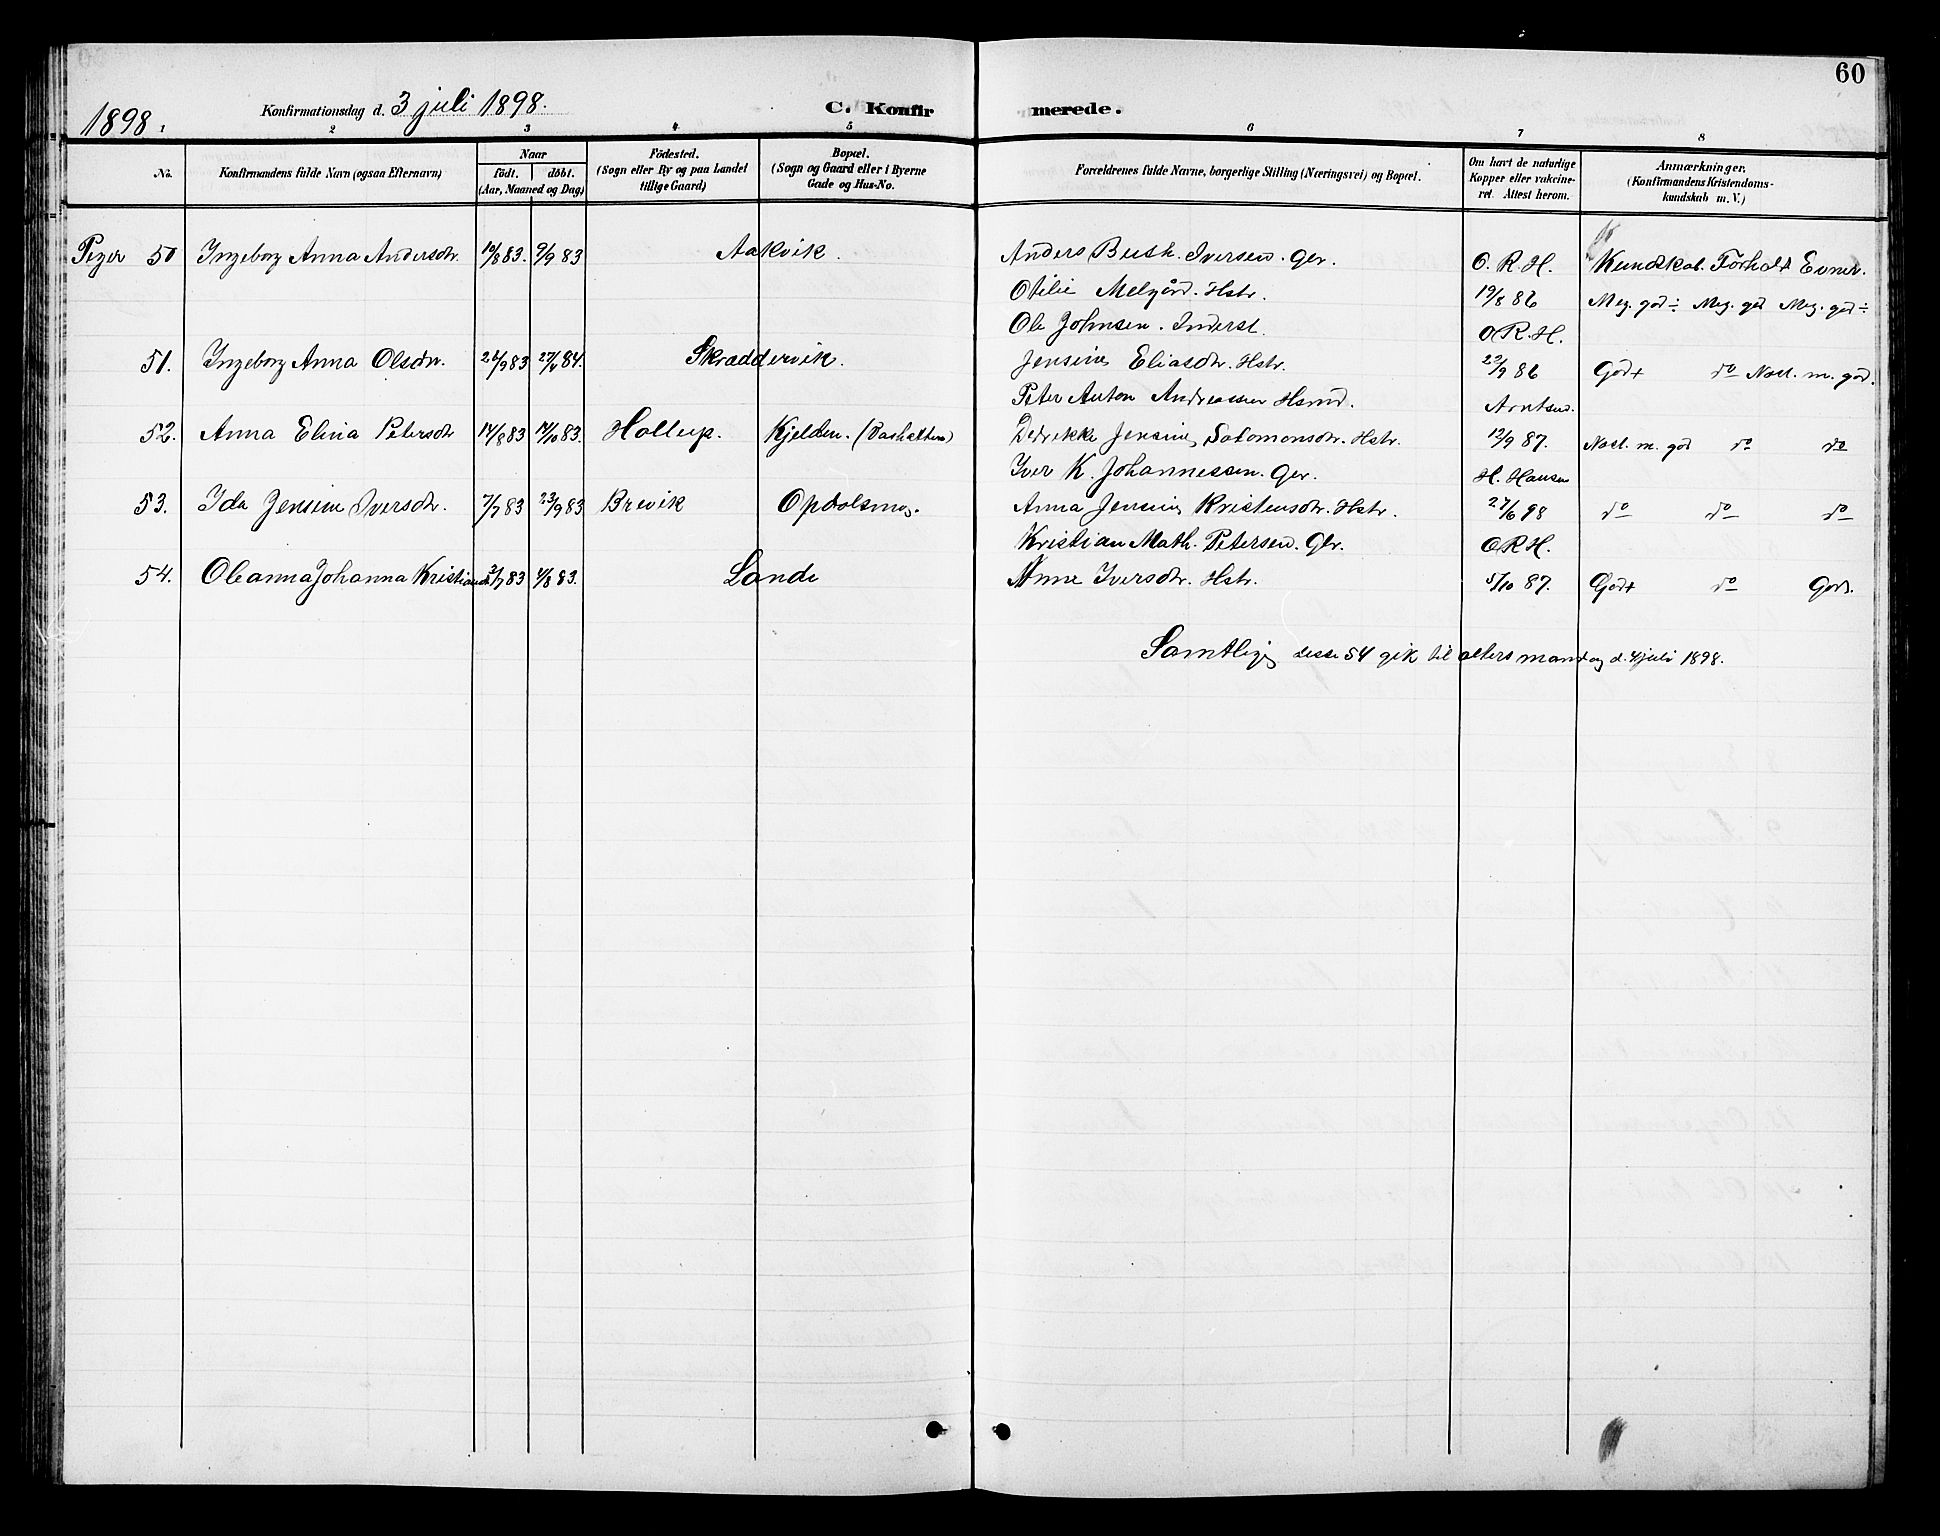 60
1898. Konfirmationsdag d. 3 juli 1898. C. Konfir merede.
1 2 3 4 5 6 7 8
No. Konfirmandens fulde Navn (ogsaa Efternavn) Naar födt. döbt. (Aar, Maaned og Dag) Födested. (Sogn eller By og paa Landet tillige Gaard) Bopæl. (Sogn og Gaard eller i Byerne Gade og Hus-No. Forældrenes fulde Navne, borgerlige Stilling (Næringsvei) og Bopæl. Om havt de naturlige Kopper eller vakcineret. Attest herom. Anmærkninger. (Konfirmandens Kristendomskundskab m. V.)
Piger 50 Ingeborg Anna Andersdtr. 10/8 83. 9/9 83 Aakvik. Anders Bush. Iversen. Gbr. O. R. H. Kundskab. Forhold Evner.
Otilie Melgård. Hstr. 19/8 86 Meg. god ÷ Meg. god Meg. god ÷
Ole Johnsen. Inderst. O R. H.
51. Ingeborg Anna Olsdtr. 26/9 83 27/4 84. Skræddervik. Jensine Eliasdtr. Hstr. 29/9 86 God+ do Noll. m. god.
Peter Anton Andreassen Hsmd. Arntsen.
52. Anna Elina Petersdtr 14/8 83 14/10 83. Hollup. Kjelden. Didrikke Jensine Salomonsdtr. Hstr. 12/9 87. Noll. m. god do do
Iver K. Johannessen. Gbr. H. Hansen
53. Ida Jensine Iversdtr. 7/7 83 23/9 83 Brevik Opdolsmo. Anna Jensine Kristensdtr. Hstr. 27/6 98 do do do
Kristian Math. Petersen. Gbr. O R H.
54. Oleanna Johanna Kristiansd 2/7 83 4/8 83. Lande Anne Iversdtr. Hstr. 5/10 87. God+ do God.
Samtlige disse 54 gik til alters mandag d. 4 juli 1898.